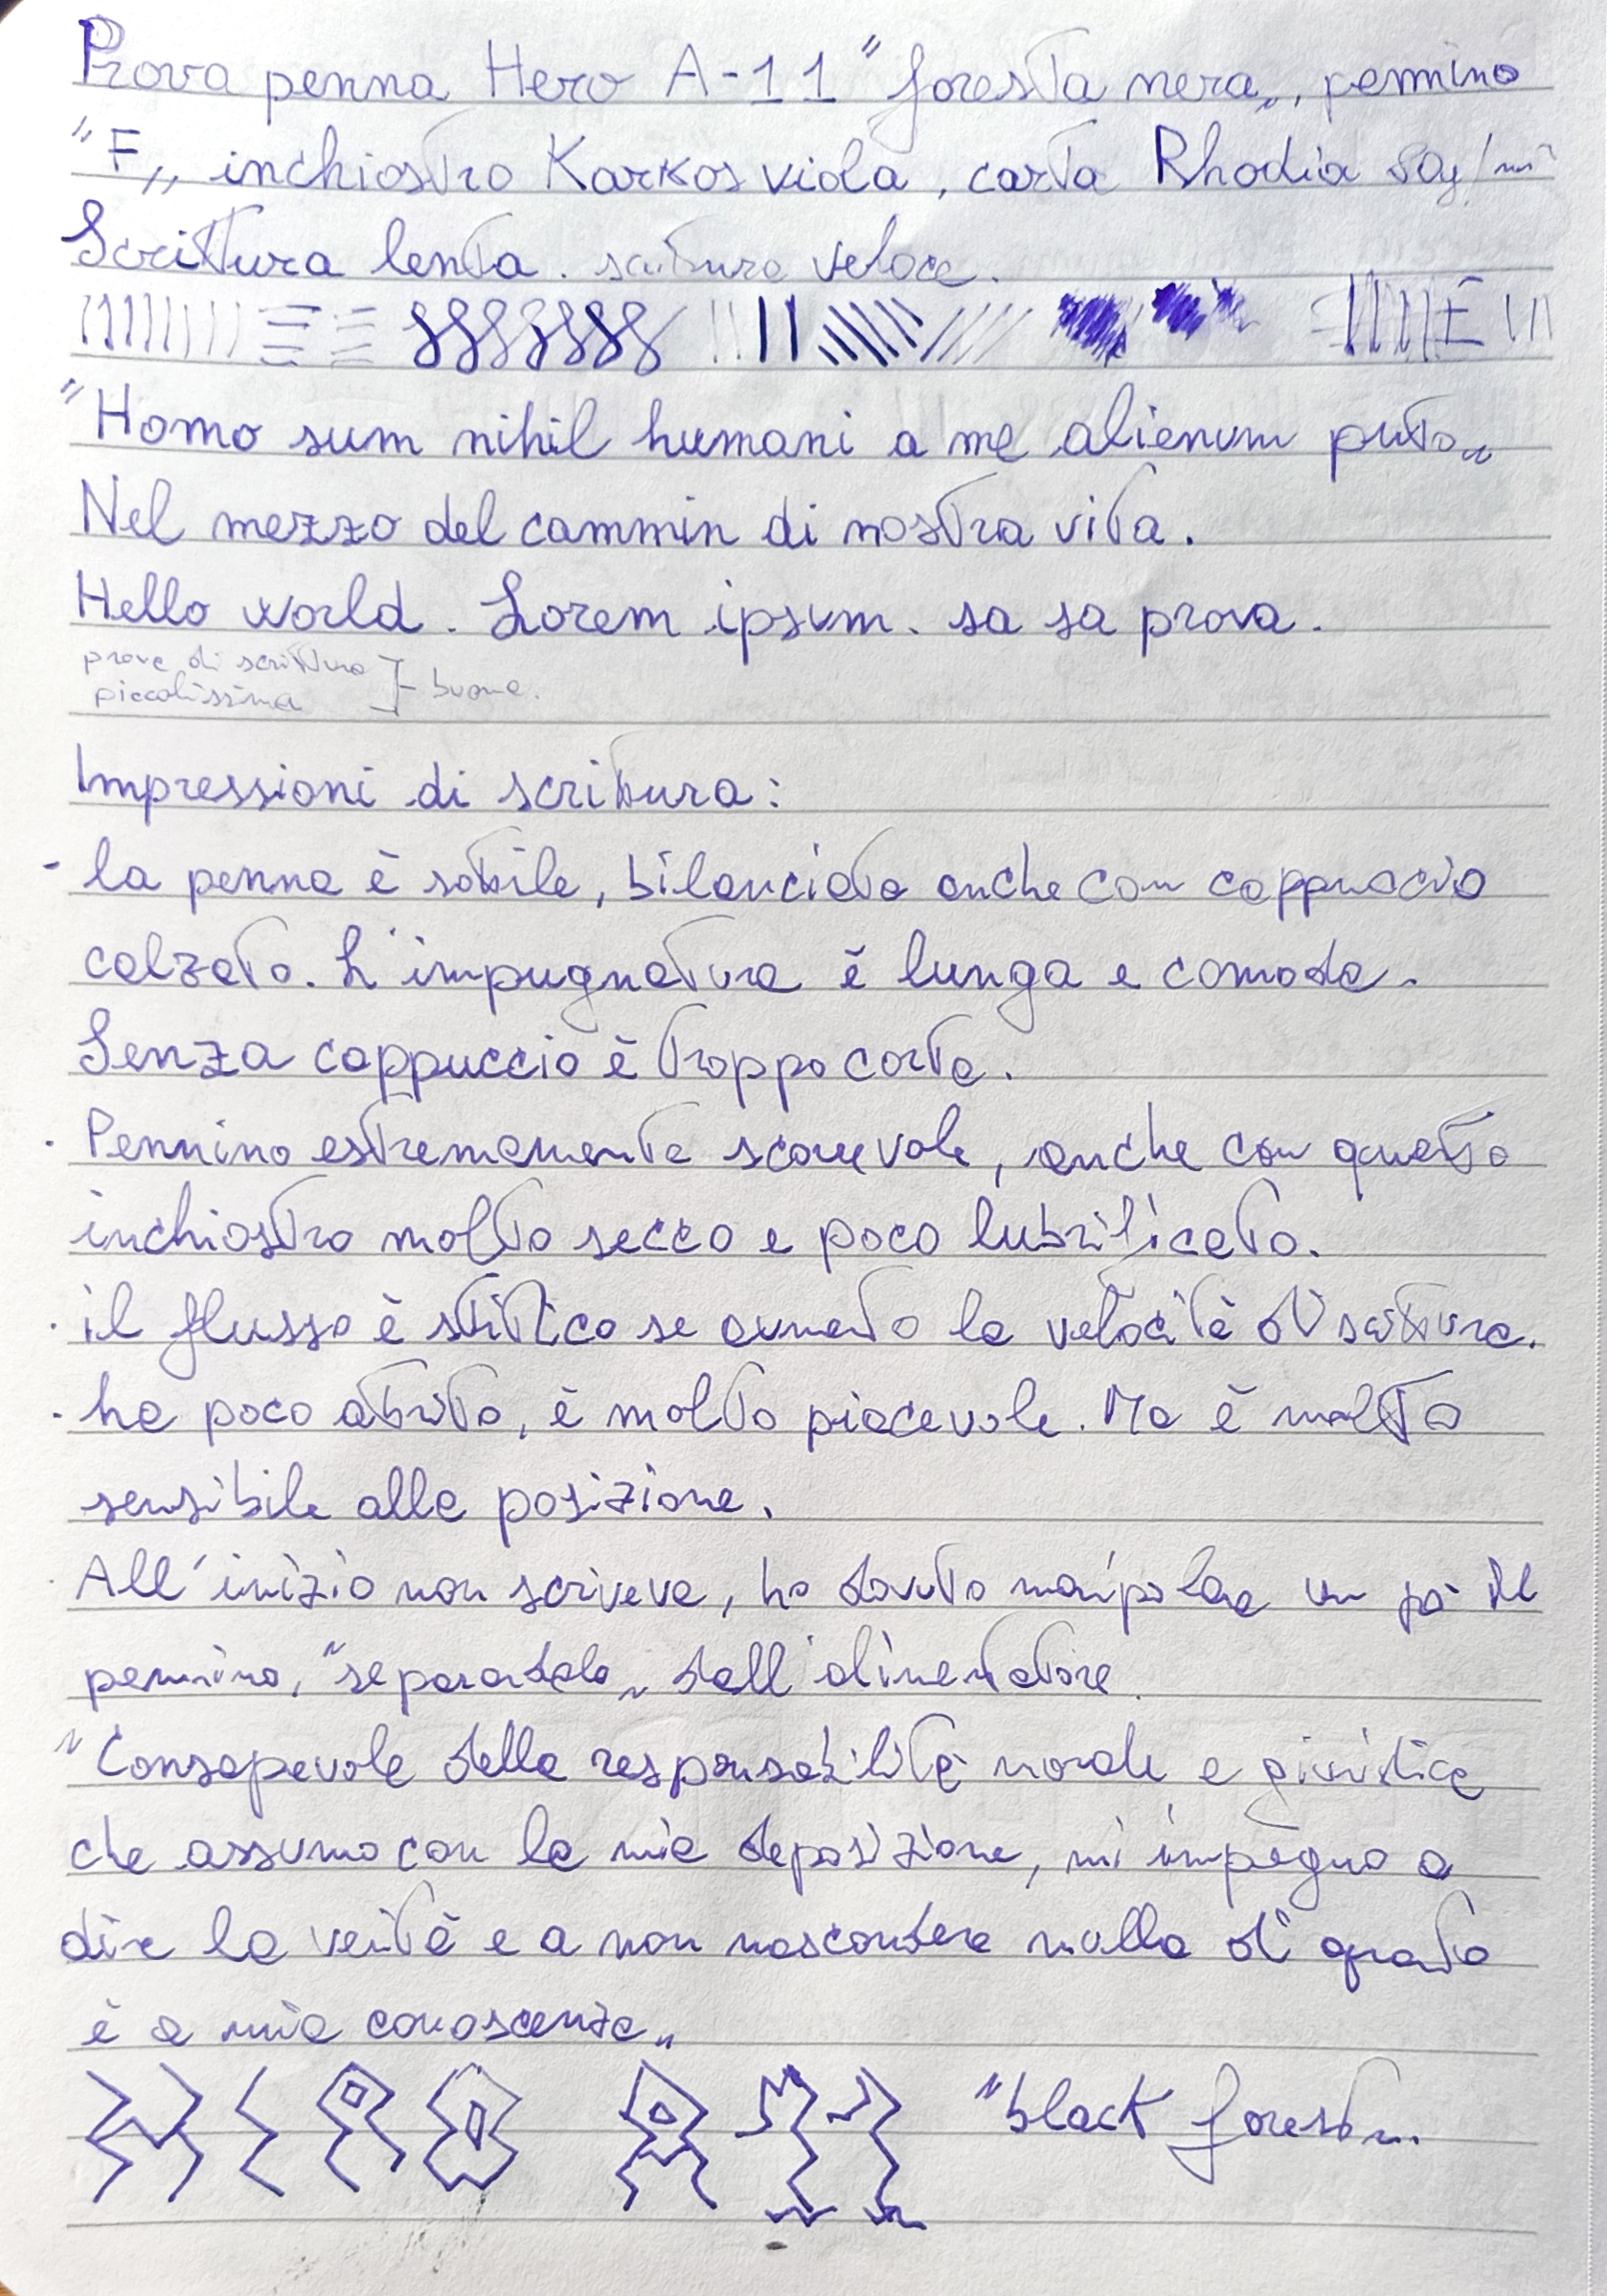 Prova penna Hero A-11 "foresta nera", pennino
"F", inchiostro Karkos viola, carta Rhodia 80g/m²
Scrittura lenta. scrittura veloce.
"Homo sum nihil humani a me alienum puto"
Nel mezzo del cammin di nostra vita.
Hello world. Lorem ipsum. sa sa prova.
prove di scrittura
piccolissima } buone.
Impressioni di scrittura:
- la penna è sottile, bilanciata anche con cappuccio
calzato. L'impugnatura è lunga e comoda.
Senza cappuccio è troppo corta.
· Pennino estremamente scorrevole, anche con questo
inchiostro molto secco e poco lubrificato.
· il flusso è stitico se aumento la velocità di scrittura.
· ha poco attrito, è molto piacevole. Ma è molto
sensibile alla posizione.
· All'inizio non scriveva, ho dovuto manipolare un pò il
pennino, "separandolo" dall'alimentatore.
"Consapevole della responsabilità morale e giuridica
che assumo con la mia deposizione, mi impegno a
dire la verità e a non nascondere nulla di quanto
è a mia conoscenza"
HERO A 11 "black forest".